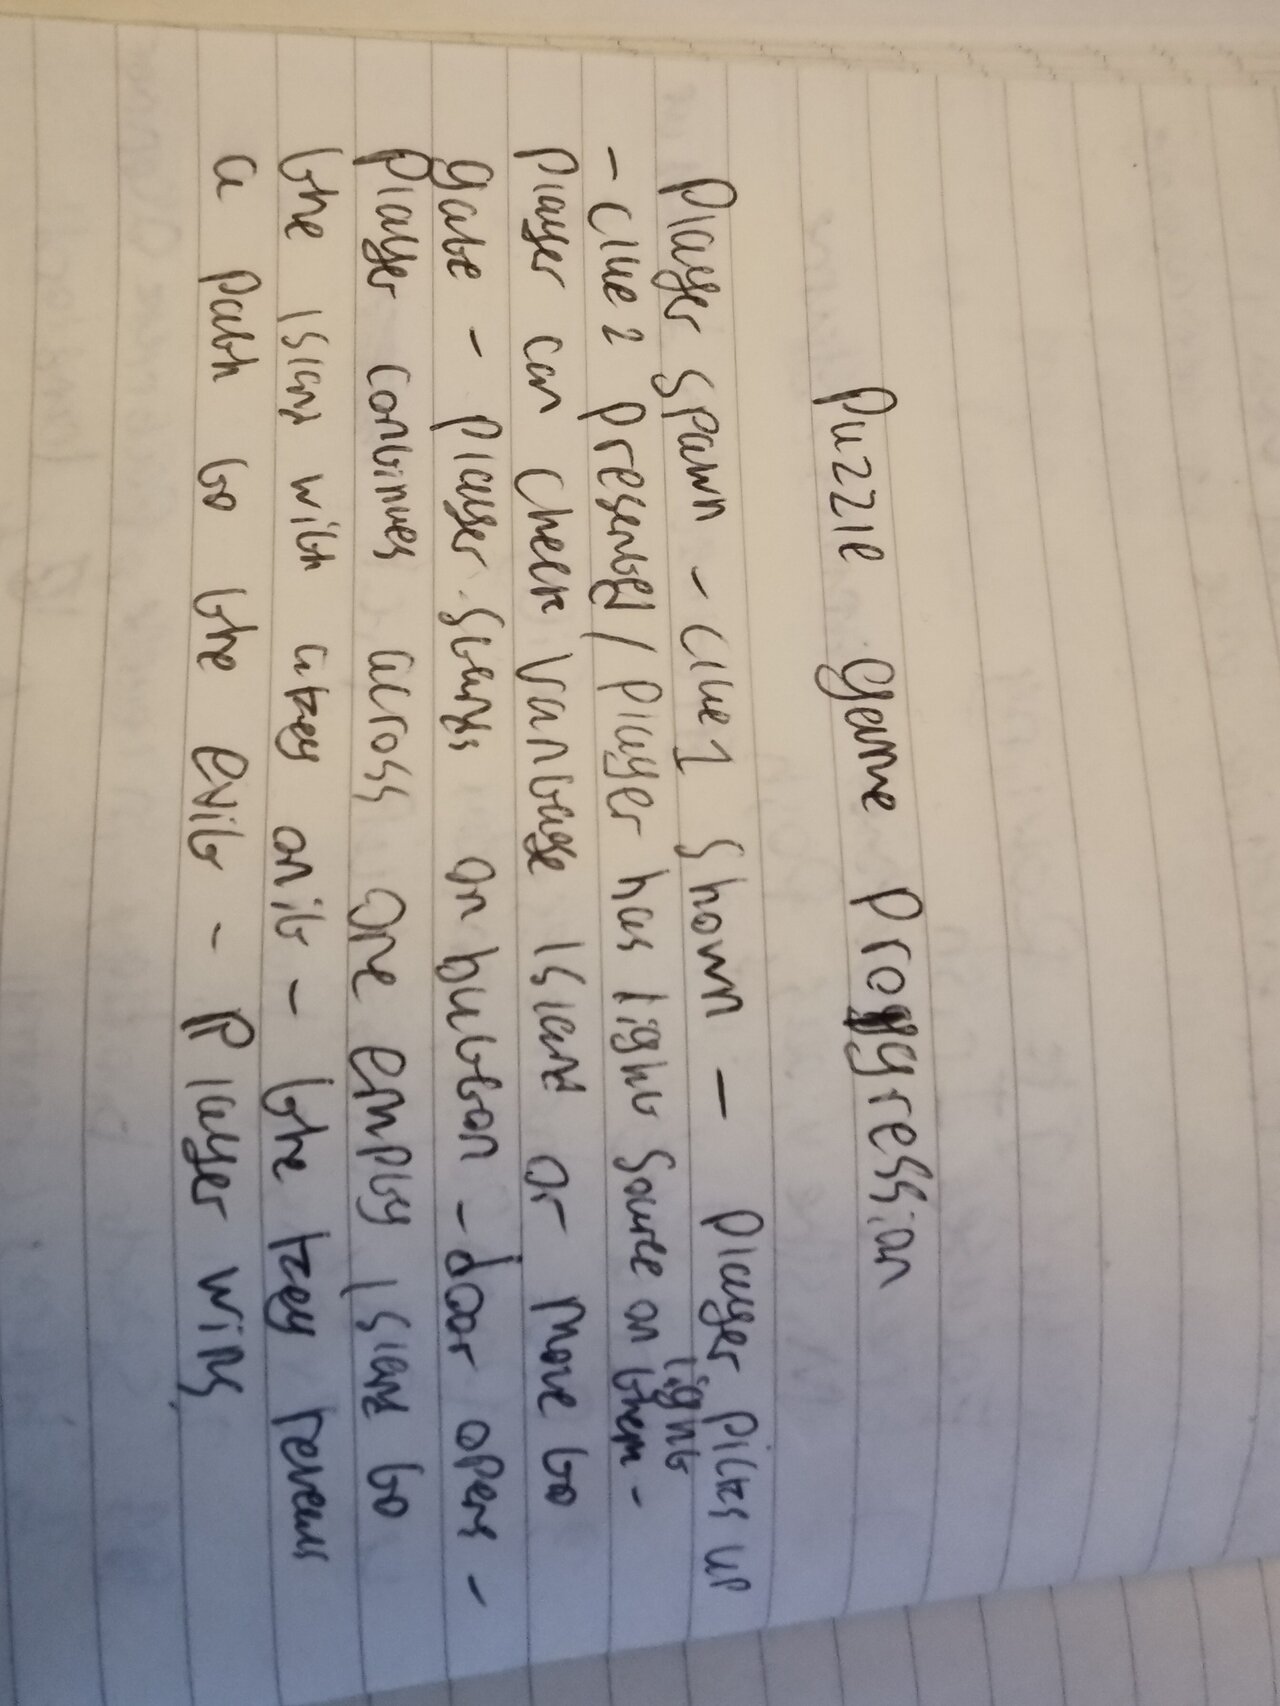 Puzzle game Proggression
Player spawn - clue 1 shown - player picks up
light
- clue 2 presented / player has light source on them -
player can check vantage island or move to
gate - player stands on button - door opens -
player continues across one empty island to
the island with a key on it - the key reveals
a path to the exit - Player wins